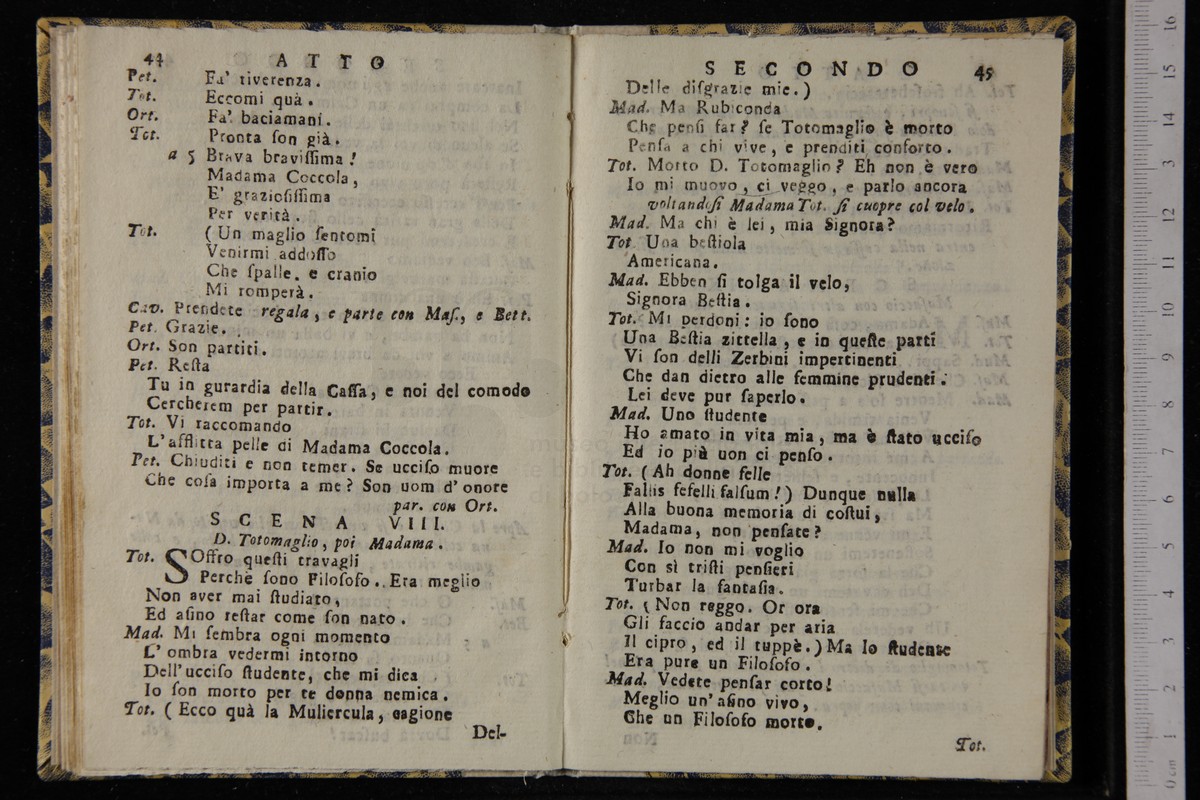 44 ATTO
Pet. Fa' riverenza.
Tot. Eccomi quà.
Ort. Fa' baciamani.
Tot. Pronta ſon già.
a 5 Brava braviſſima!
Madama Coccola,
E' grazioſiſſima
Per verità.
Tot. (Un maglio ſentomi
Venirmi addoſſo
Che ſpalle, e cranio
Mi romperà.
Cav. Prendete regala, e parte con Maſ., e Bett.
Pet. Grazie.
Ort. Son partiti.
Pet. Reſta
Tu in gurardia della Caſſa, e noi del comodo
Cercherem per partir.
Tot. Vi raccomando
L'afflitta pelle di Madama Coccola.
Pet. Chiuditi e non temer. Se ucciſo muore
Che coſa importa a me? Son uom d'onore
par. con Ort.
SCENA VIII.
D. Totomaglio, poi Madama.
Tot. SOffro queſti travagli
Perchè ſono Filoſofo. Era meglio
Non aver mai ſtudiato,
Ed aſino reſtar come ſon nato.
Mad. Mi ſembra ogni momento
L'ombra vedermi intorno
Dell'ucciſo ſtudente, che mi dica
Io ſon morto per te donna nemica.
Tot. (Ecco quà la Muliercula, cagione
Del-
SECONDO 45
Delle diſgrazie mie.)
Mad. Ma Rubiconda
Che penſi far? ſe Totomaglio è morto
Penſa a chi vive, e prenditi conforto.
Tot. Morto D. Totomaglio? Eh non è vero
Io mi muovo, ci veggo, e parlo ancora
voltandoſi Madama Tot. ſi cuopre col velo.
Mad. Ma chi è lei, mia Signora?
Tot. Una beſtiola
Americana.
Mad. Ebben ſi tolga il velo,
Signora Beſtia.
Tot. Mi perdoni: io ſono
Una Beſtia zittella, e in queſte parti
Vi ſon delli Zerbini impertinenti
Che dan dietro alle femmine prudenti.
Lei deve pur ſaperlo.
Mad. Uno ſtudente
Ho amato in vita mia, ma è ſtato ucciſo
Ed io più uon ci penſo.
Tot. (Ah donne felle
Fallis fefelli falſum!) Dunque nulla
Alla buona memoria di coſtui,
Madama, non penſate?
Mad. Io non mi voglio
Con sì triſti penſieri
Turbar la fantaſia.
Tot. (Non reggo. Or ora
Gli faccio andar per aria
Il cipro, ed il tuppè.) Ma lo ſtudente
Era pure un Filoſofo.
Mad. Vedete penſar corto!
Meglio un'aſino vivo,
Che un Filoſofo morto.
Tot.